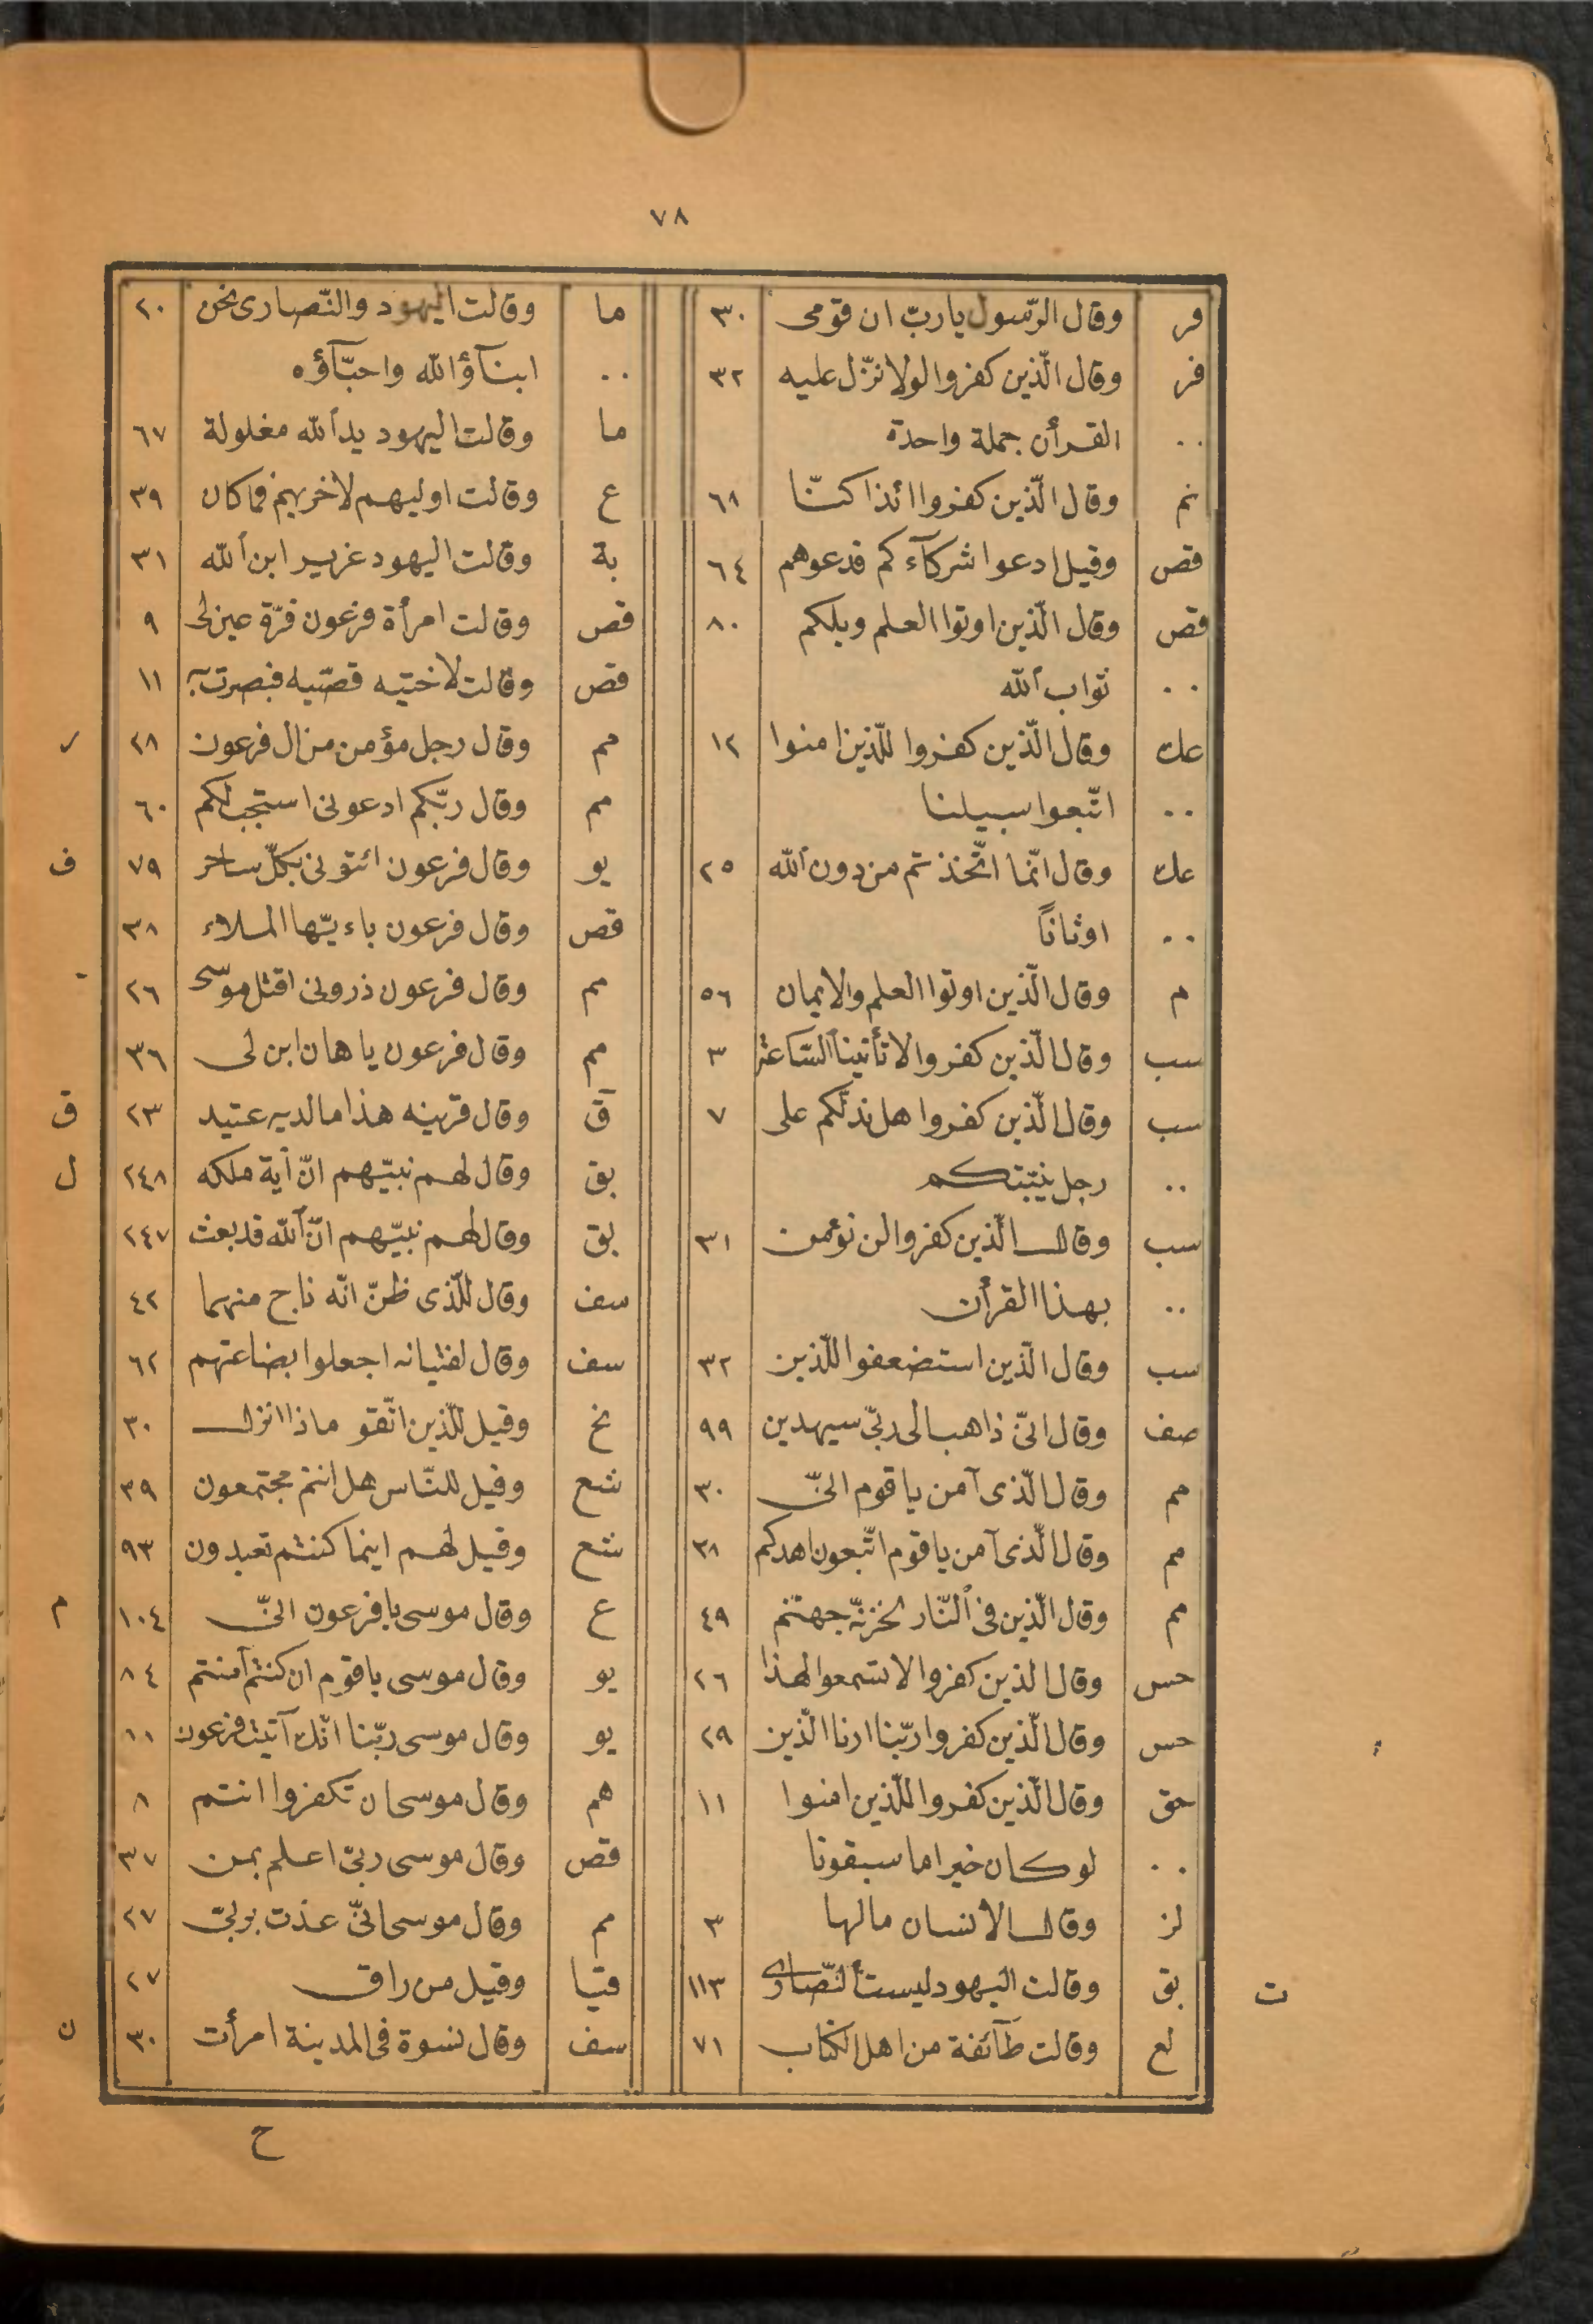 ٧٨
فر وقال الرّسول يا ربّ ان قومى ٣٠
فر وقال الّذين كفروا لولا نزّل عليه ٣٢
.. القرأن جملة واحدة
نم وقال الّذين كفروا ائذا كنّا ٦٨
قص وقيل ادعوا شركآءكم فدعوهم ٦٤
قص وقال الّذين اوتوا العلم ويلكم ٨٠
.. ثواب الله
عك وقال الّذين كفروا للّذين امنوا ١٢
.. اتّبعوا سبيلنا
عك وقال انّما اتّخذتم من دون الله ٢٥
.. اوثاناً
م وقال الّذين اوتوا العلم والايمان ٥٦
سب وقال الّذين كفروا لا تأتينا السّاعة ٣
سب وقال الّذين كفروا هل ندلّكم على ٧
.. رجل ينبّئكم
سب وقال الّذين كفروا لن نؤمن ٣١
.. بهذا القرأن
سب وقال الّذين استضعفوا للّذين ٣٢
صف وقال انّى ذاهب الى ربّى سيهدين ٩٩
مم وقال الّذى آمن يا قوم انّى ٣٠
مم وقال الّذى آمن يا قوم اتّبعون اهدكم ٣٨
مم وقال الّذين فى النّار لخزنة جهنّم ٤٩
حس وقال الذين كفروا لا تسمعوا لهذا ٢٦
حس وقال الّذين كفروا ربّنا ارنا الّذين ٢٩
حق وقال الّذين كفروا للّذين امنوا ١١
.. لو كان خيرا ما سبقونا
لز وقال الانسان مالها ٣
ت بق وقالت اليهود ليست النّصارى ١١٣
لع وقالت طآئفة من اهل الكتاب ٧١
ما وقالت اليهود والنّصارى نحن ٢٠
.. ابنآؤ الله واحبّآؤه
ما وقالت اليهود يد الله مغلولة ٦٧
ع وقالت اوليهم لاخريهم فما كان ٣٩
بة وقالت اليهود عزير ابن الله ٣١
قص وقالت امرأة فرعون قرّة عين لى ٩
قص وقالت لاختيه قصّيه فبصرت به ١١
مم وقال رجل مؤمن من ال فرعون ٢٨ ر
مم وقال ربّكم ادعونى استجب لكم ٦٠
يو وقال فرعون ائتونى بكلّ ساحر ٧٩ ف
قص وقال فرعون ياءيّها الملاء ٣٨
مم وقال فرعون ذرونى اقتل موسى ٢٦
مم وقال فرعون يا هان ابن لى ٣٦
قٓ وقال قرينه هذا ما لديه عتيد ٢٣ ق
بق وقال لهم نبيّهم انّ أية ملكه ٢٤٨ ل
بق وقال لهم نبيّهم انّ الله قد بعث ٢٤٧
سف وقال للّذى ظنّ انّه ناج منهما ٤٢
سف وقال لفتيانه اجعلوا بضاعتهم ٦٢
نح وقيل للّذين اتّقو ماذا انزل ٣٠
شع وقيل للنّاس هل انتم مجتمعون ٣٩
شع وقيل لهم اينما كنتم تعبدون ٩٣
ع وقال موسى يا فرعون انّى ١٠٤ م
يو وقال موسى يا قوم ان كنتم آمنتم ٨٤
يو وقال موسى ربّنا انّك آتيت فرعون
هم وقال موسى ان تكفروا انتم ٨
قص وقال موسى ربّى اعلم بمن ٣٧
مم وقال موسى انّى عذت بربّى ٢٧
قيا وقيل من راق ٢٧
سف وقال نسوة فى المدينة امرأت ٣٠ ن
ح